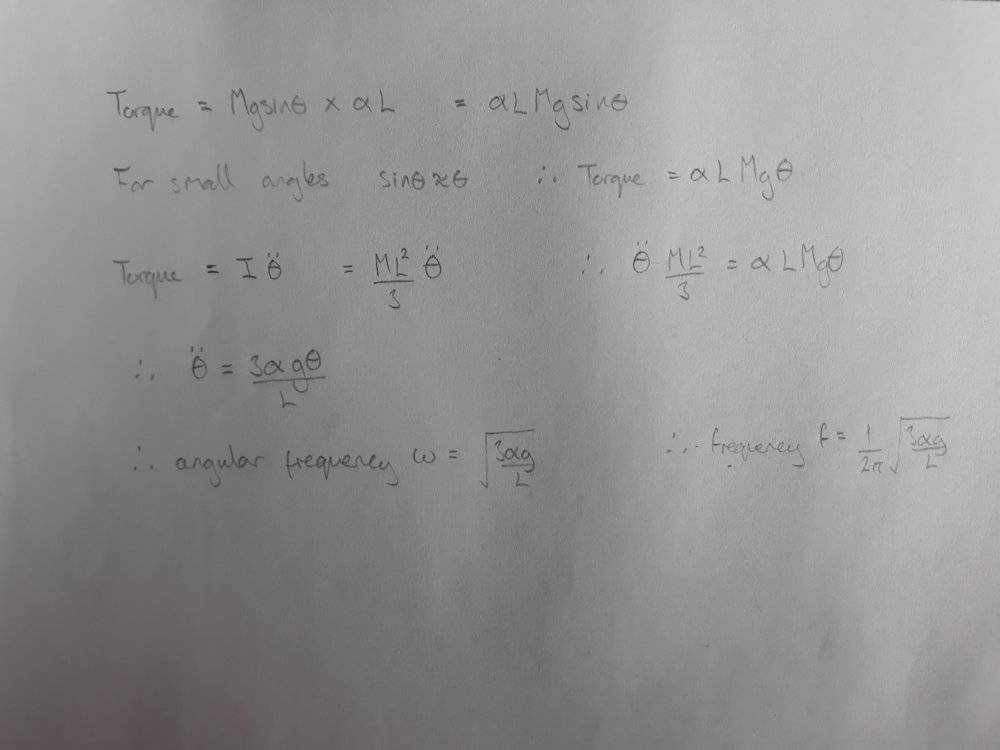 Torque = Mgsinθ × αL = αLMgsinθ
For small angles sinθ≈θ ∴ Torque = αLMgθ
Torque = Iθ̈ = ML²/3 θ̈ ∴ θ̈ ML²/3 = αLMgθ
∴ θ̈ = 3αgθ/L
∴ angular frequency ω = √(3αg/L) ∴ frequency f = 1/2π √(3αg/L)